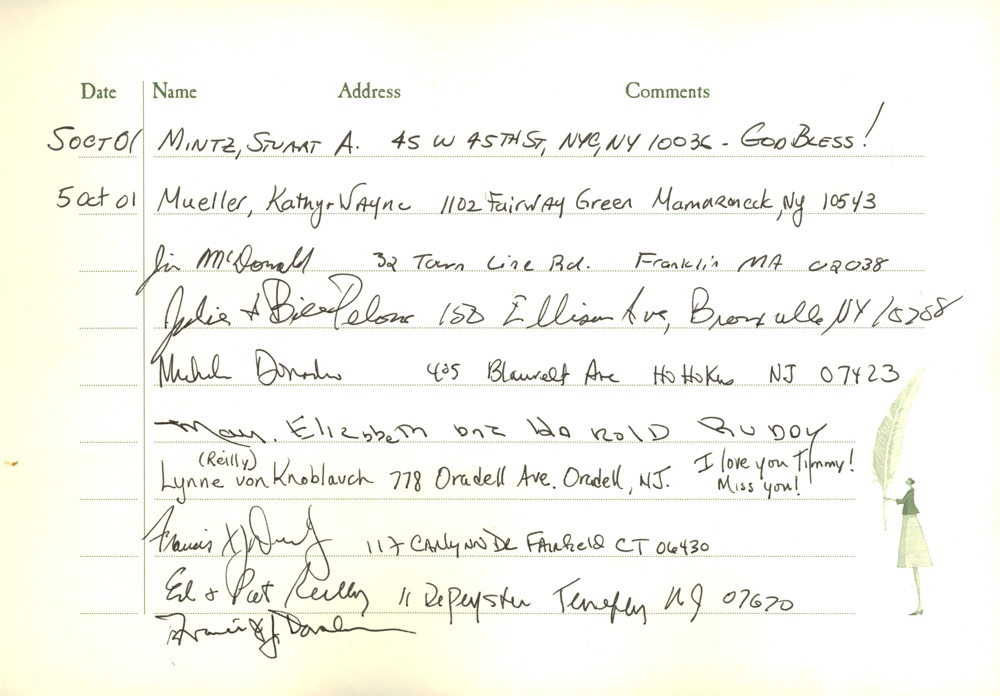 Date Name Address Comments
5 OCT 01 MINTZ, STUART A. 45 W 45TH ST, NYC, NY 10036 - GOD BLESS!
5 Oct 01 Mueller, Kathy + Wayne 1102 Fairway Green Mamaroneck, Ny 10543
Jim McDonald 32 Town Line Rd. Franklin MA 02038
Julie + Bill Pelone 158 Ellison Ave, Bronxville, NY
Michele 405 Blauvelt Ave HoHoKus NJ 07423
Mary Elizabeth and Harold RUDDY
(Reilly)
Lynne von Knoblauch 778 Oradell Ave. Oradell, NJ. I love you Timmy!
Miss you!
Francis X J 117 CARlynn DR FAirfield CT 06430
Ed + Pat Reilly 11 DePeyster Tenafly NJ 07670
Francis J.